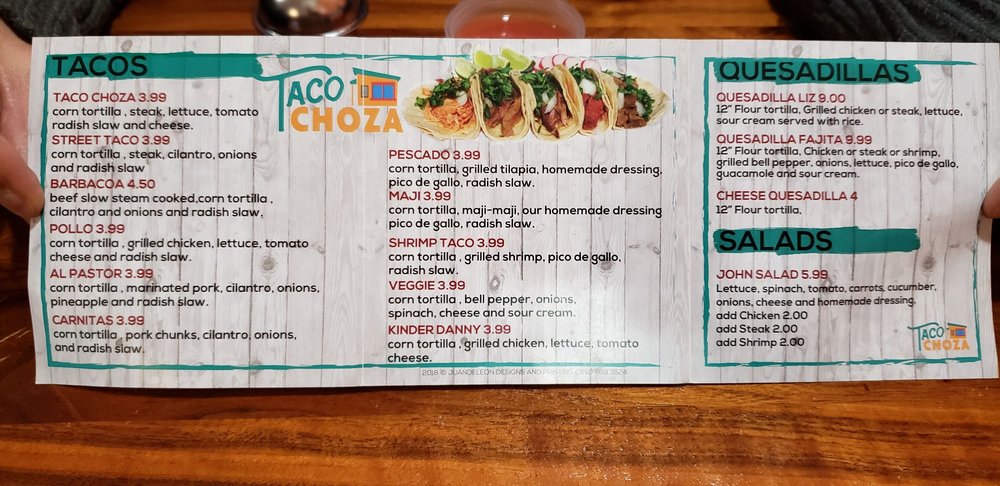 TACOS
TACO CHOZA 3.99
corn tortilla , steak, lettuce, tomato
radish slaw and cheese.
STREET TACO 3.99
corn tortilla , steak, cilantro, onions
and radish slaw
BARBACOA 4.50
beef slow steam cooked,corn tortilla ,
cilantro and onions and radish slaw,
POLLO 3.99
corn tortilla , grilled chicken, lettuce, tomato
cheese and radish slaw.
AL PASTOR 3.99
corn tortilla , marinated pork, cilantro, onions,
pineapple and radish slaw.
CARNITAS 3.99
corn tortilla , pork chunks, cilantro, onions,
and radish slaw.
TACO
CHOZA
PESCADO 3.99
corn tortilla, grilled tilapia, homemade dressing,
pico de gallo, radish slaw.
MAJI 3.99
corn tortilla, maji-maji, our homemade dressing
pico de gallo, radish slaw.
SHRIMP TACO 3.99
corn tortilla , grilled shrimp, pico de gallo,
radish slaw.
VEGGIE 3.99
corn tortilla , bell pepper, onions,
spinach, cheese and sour cream.
KINDER DANNY 3.99
corn tortilla , grilled chicken, lettuce, tomato
cheese.
2018 © JUANDELEON DESIGNS AND PRINTING
QUESADILLAS
QUESADILLA LIZ 9.00
12" Flour tortilla, Grilled chicken or steak, lettuce,
sour cream served with rice.
QUESADILLA FAJITA 9.99
12" Flour tortilla, Chicken or steak or shrimp,
grilled bell pepper, onions, lettuce, pico de gallo,
guacamole and sour cream.
CHEESE QUESADILLA 4
12" Flour tortilla,
SALADS
JOHN SALAD 5.99
Lettuce, spinach, tomato, carrots, cucumber,
onions, cheese and homemade dressing.
add Chicken 2.00
add Steak 2.00
add Shrimp 2.00
TACO
CHOZA